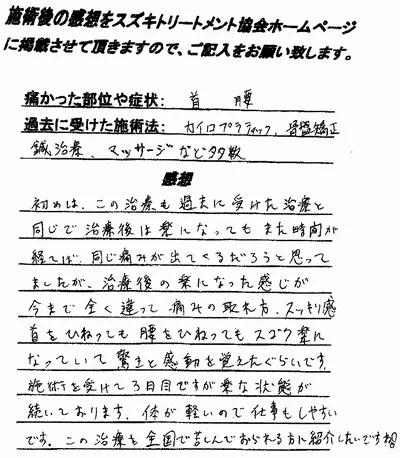 施術後の感想をスズキトリートメント協会ホームページ
に掲載させて頂きますので、ご記入をお願い致します。
痛かった部位や症状: 首 腰
過去に受けた施術法: カイロプラティック、骨盤矯正
鍼治療、マッサージなど多数
感想
初めは、この治療も過去に受けた治療と
同じで治療後は楽になってもまた時間が
経てば、同じ痛みが出てくるだろうと思って
ましたが、治療後の楽になった感じが
今まで全く違って痛みの取れ方、スッキリ感
首をひねっても腰をひねってもスゴク楽に
なっていて驚きと感動を覚えたぐらいです。
施術を受けて3日目ですが楽な状態が
続いております。体が軽いので仕事もしやすい
です。この治療を全国で苦しんでおられる方に紹介したいですね